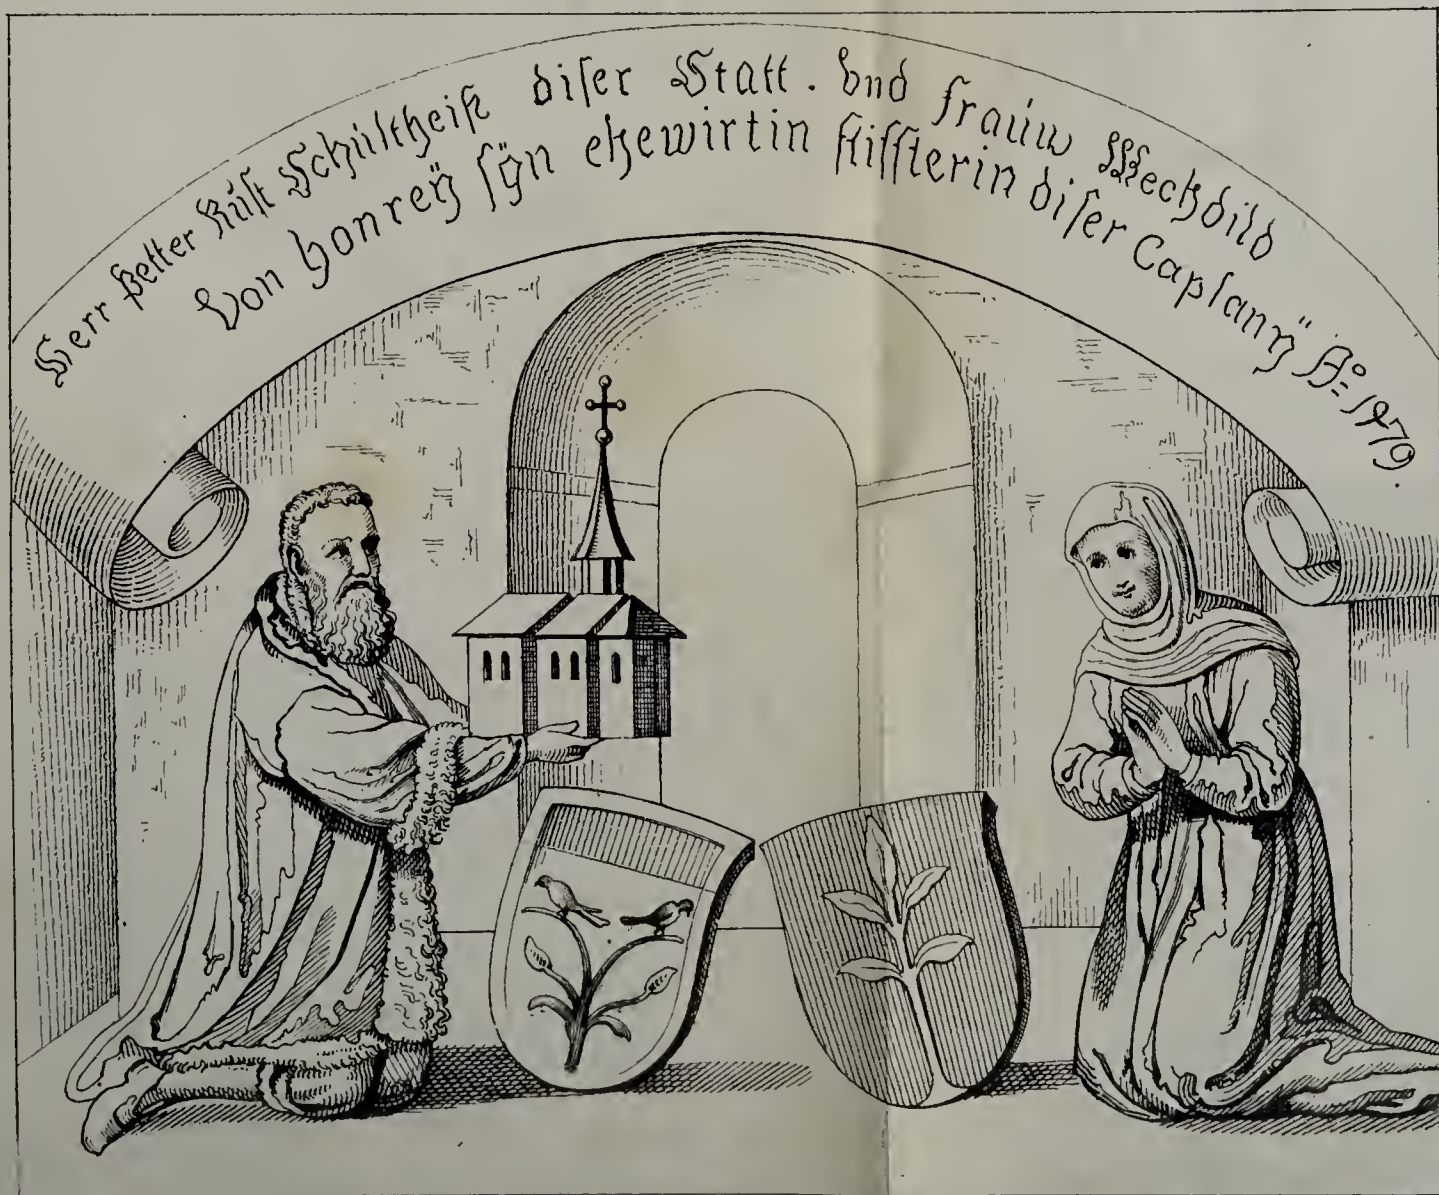 Herr Petter Rúst Schúltheiß diser Statt. Vnd fraúw Mechdild
Von Honreÿ sÿn ehewirtin stiffterin diser Caplanÿ Aº 1479.